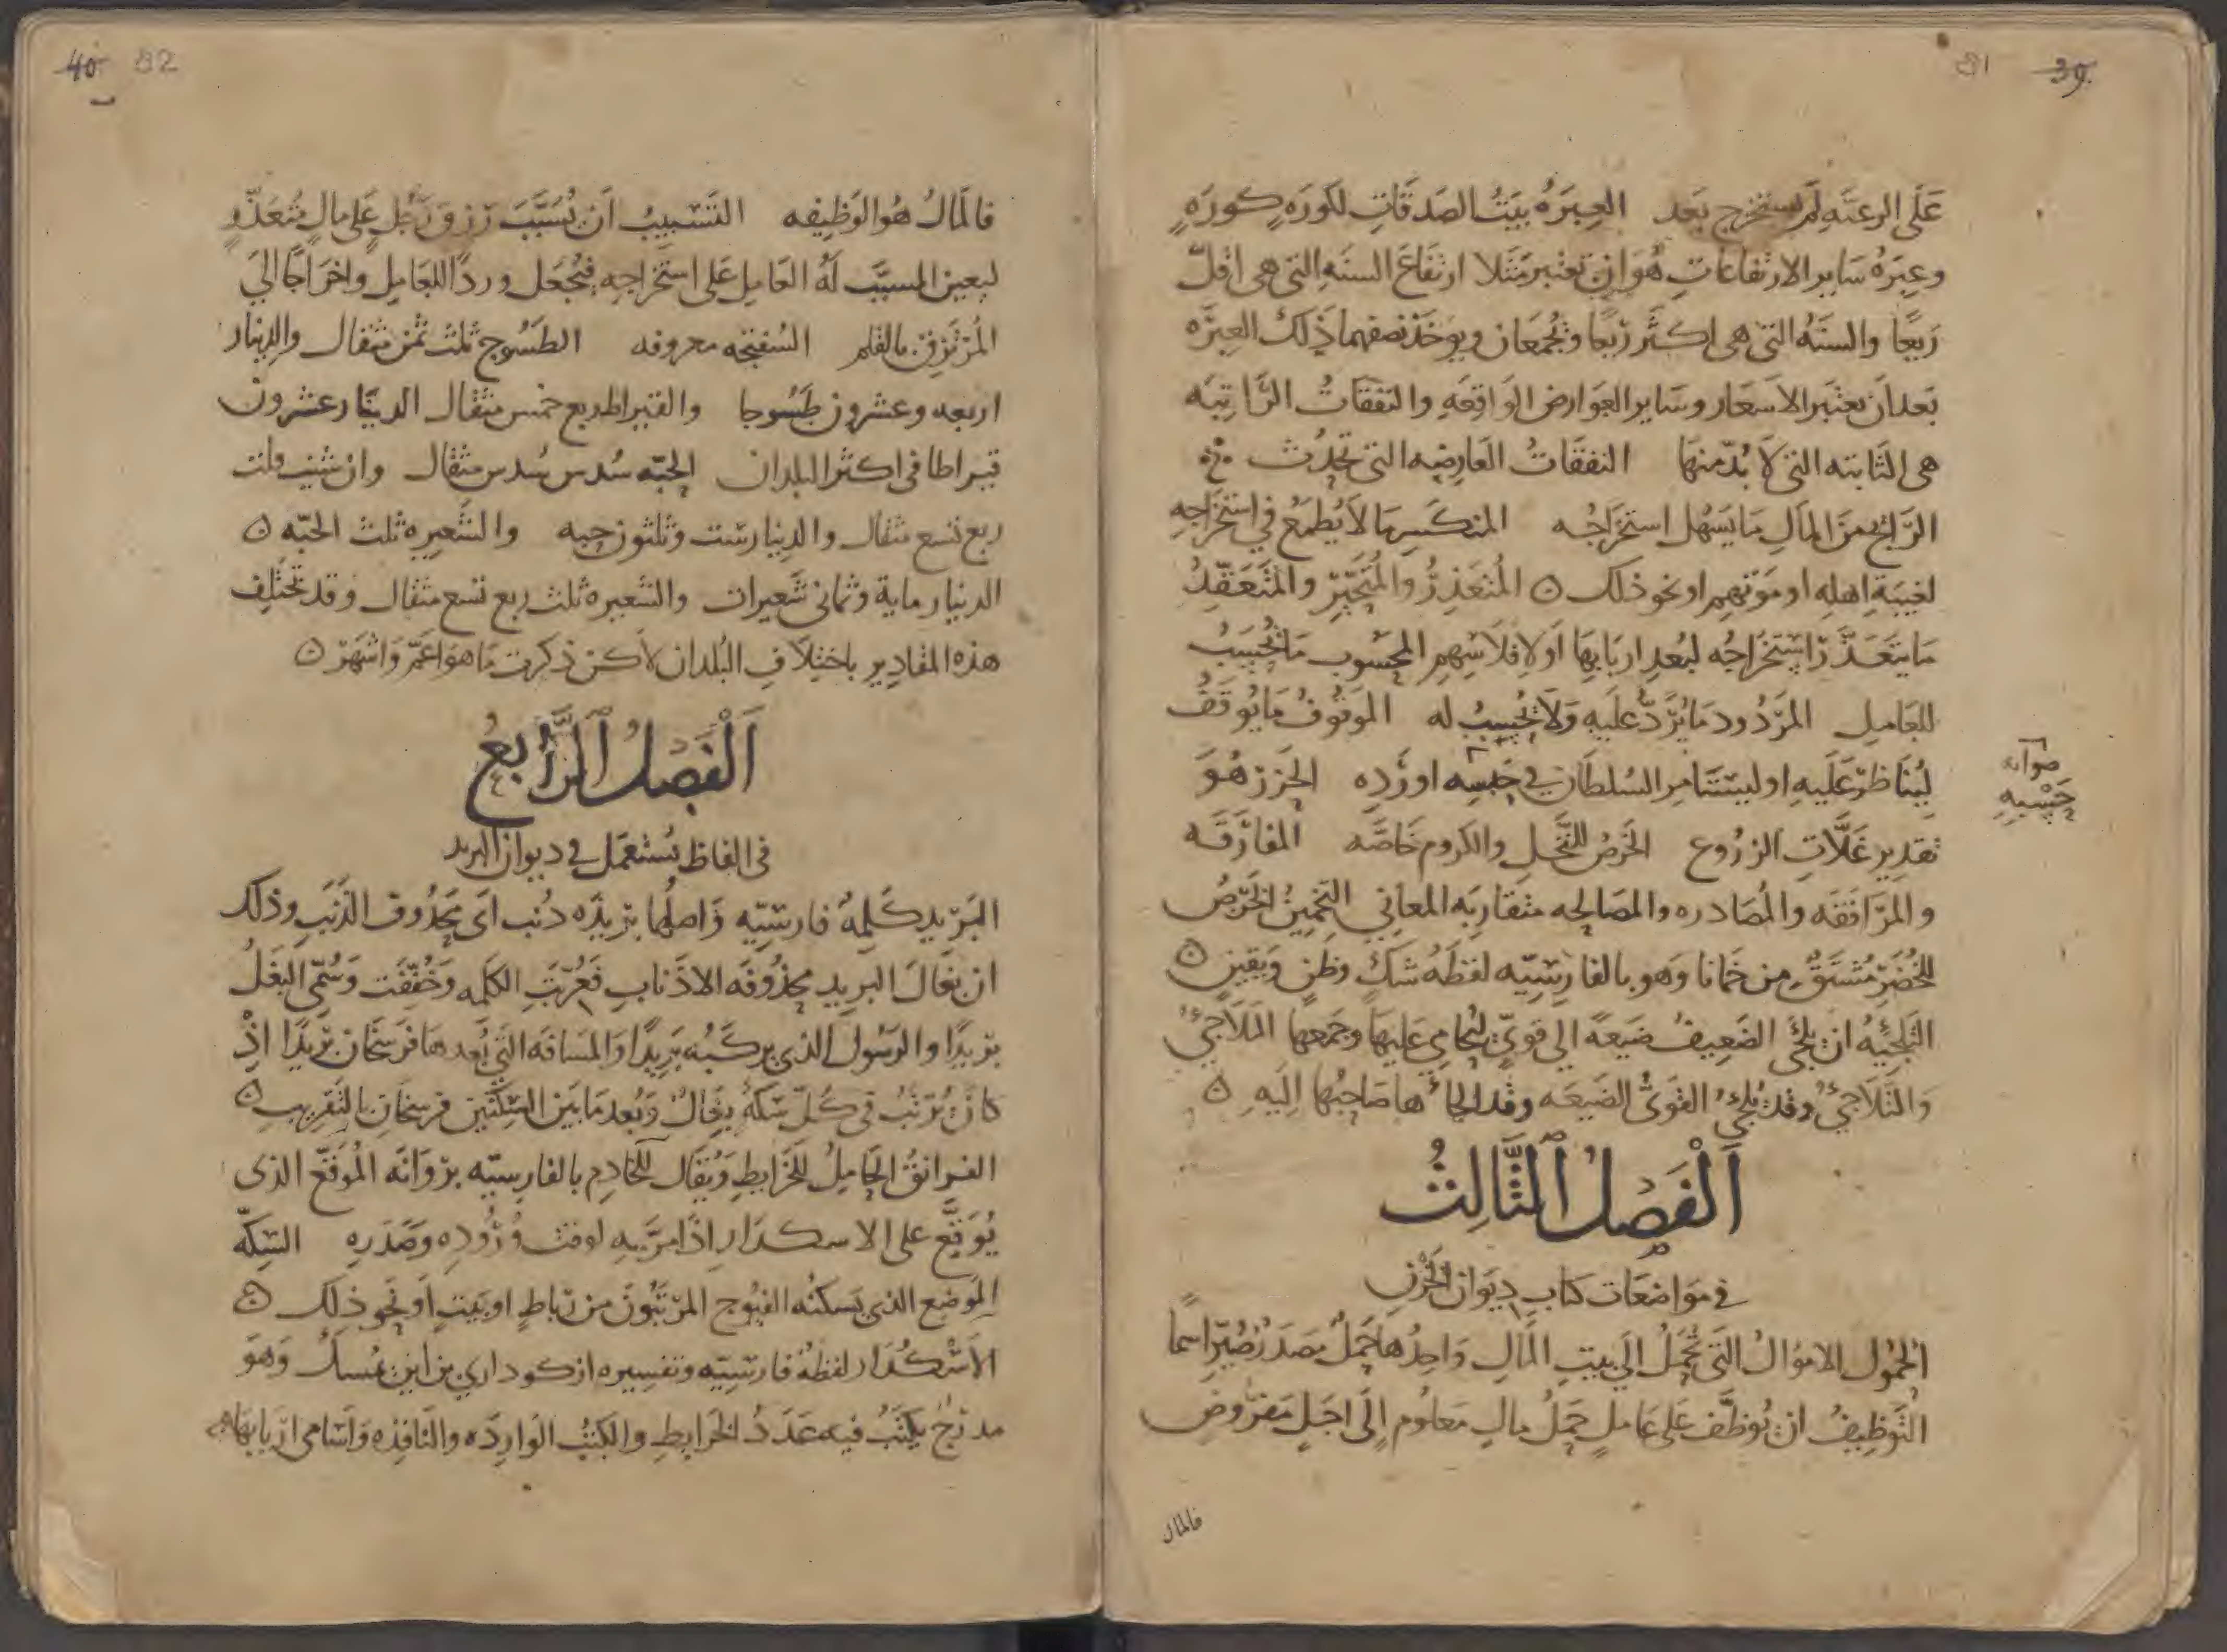 81 39
على الرعية لم يستخرج بعد العبرة بيت الصدقات لكورة كورة
وعبرة ساير الارتفاعات هو ان تعتبر مثلا ارتفاع السنه التي هي اقل
ريعا والسنه التي هي اكثر ريعا وتجمعان ويوخذ نصفهما فذلك العبره
بعد ان يعتبر الاسعار وساير العوارض الواقعه والنفقات الراتبه
هي الثابته التي لا بد منها النفقات العارضه التي تحدث
الرايج من المال ما يسهل استخراجه المنكسر ما لا يطمع في استخراجه
لغيبة اهله او موتهم او نحو ذلك ه المتعذر والمتحير والمتعقد
ما يتعذر استخراجه لبعد اربابها او لافلاسهم المحسوب ما يحسب
للعامل المردود ما يرد عليه ولا يحسب له الموقوف ما يوقف
ليناظر عليه او ليستامر السلطان في حبسه او رده الحزر هو
صوابه
حسبه
تقدير غلات الزروع الخرص للنخل والكروم خاصه المفارقه
والمرافقه والمصادره والمصالحه متقاربه المعاني التخمين الخرص
للخضر مشتق من خمانا وهو بالفارسيه لفظه شك وظن ويقين ه
التلجيه ان يلجي الضعيف ضيعه الى قوي ليحامي عليها وجمعها الملاجئ
والتلاجئ وقد يلجئ القوي الضيعه وقد الجاها صاحبها اليه ه
الفصل الثالث
في مواضعات كتاب ديوان الخزن
الحمول الاموال التي تحمل الي بيت المال واحدها حمل مصدر صير اسما
التوظيف ان يوظف على عامل حمل مال معلوم الى اجل مفروض
فالمال
40 82
فالمال هو الوظيفه التسبيب ان يسبب رزق رجل على مال متعذر
ليعين المسبب له العامل على استخراجه فيجعل وردا للعامل واخراجا الي
المرتزق بالقلم السفتجه معروفه الطسوج ثلث ثمن مثقال والدينار
اربعه وعشرون طسوجا والقيراط ربع خمس مثقال الدينار عشرون
قيراطا في اكثر البلدان الحبه سدس سدس مثقال وان شيت قلت
ربع تسع مثقال والدينار ست وثلثون حبه والشعيره ثلث الحبه ه
الدينار مايه وثماني شعيرات والشعيره ثلث ربع تسع مثقال وقد تختلف
هذه المقادير باختلاف البلدان لاكن ذكرت ما هو اعم واشهر ه
الفصل الرابع
في الفاظ يستعمل في ديوان البريد
البريد كلمة فارسيه واصلها بريذه دنب اي محذوف الذنب وذلك
ان بغال البريد محذوفه الاذناب فعربت الكلمه وخففت وسمي البغل
بريدا والرسول الذي يركبه بريدا والمسافه التي بعدها فرسخان بريدا اذ
كان يرتب في كل سكة بغال وبعد ما بين السكتين فرسخان بالتقريب ه
الفرانق الحامل للخرايط ويقال للخادم بالفارسيه بروانه الموقع الذي
يوقع على الاسكدار اذا مر به لوقت وروده وصدره السكه
الموضع الذي يسكنه الفيوج المرتبون من رباط او بيت او نحو ذلك ه
الاسكدار لفظة فارسيه وتفسيره از كوداري من اين تمسك وهو
مدرج يكتب فيه عدد الخرايط والكتب الوارده والنافذه واسامي اربابها